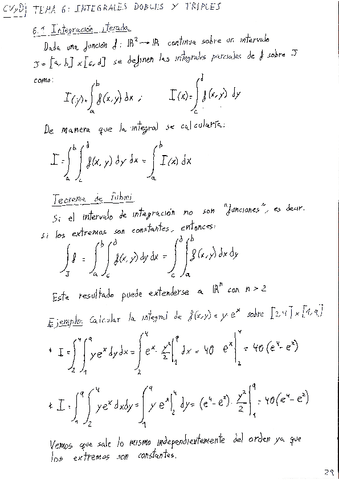 CVyDI TEMA 6: INTEGRALES DOBLES Y TRIPLES
6.1 Integración iterada
Dada una función f: ℝ² → ℝ continua sobre un intervalo
J = [a, b] x [c, d] se definen las integrales parciales de f sobre J
como:
I(y) = ∫_a^b f(x, y) dx ; I(x) = ∫_c^d f(x, y) dy
De manera que la integral se calcularía:
I = ∫_a^b ∫_c^d f(x, y) dy dx = ∫_a^b I(x) dx
Teorema de Fubini
Si el intervalo de integración no son "funciones", es decir,
si los extremos son constantes, entonces:
∫_J f = ∫_a^b ∫_c^d f(x, y) dy dx = ∫_c^d ∫_a^b f(x, y) dx dy
Este resultado puede extenderse a ℝⁿ con n > 2
Ejemplo: Calcular la integral de f(x,y) = y e^x sobre [2,4] x [1,9]
* I = ∫_2^4 ∫_1^9 y e^x dy dx = ∫_2^4 e^x · y²/2 |_1^9 dx = 40 e^x |_2^4 = 40 (e^4 - e^2)
* I = ∫_1^9 ∫_2^4 y e^x dx dy = ∫_1^9 y e^x |_2^4 dy = (e^4 - e^2) · y²/2 |_1^9 = 40 (e^4 - e^2)
Vemos que sale lo mismo independientemente del orden ya que
los extremos son constantes.
29